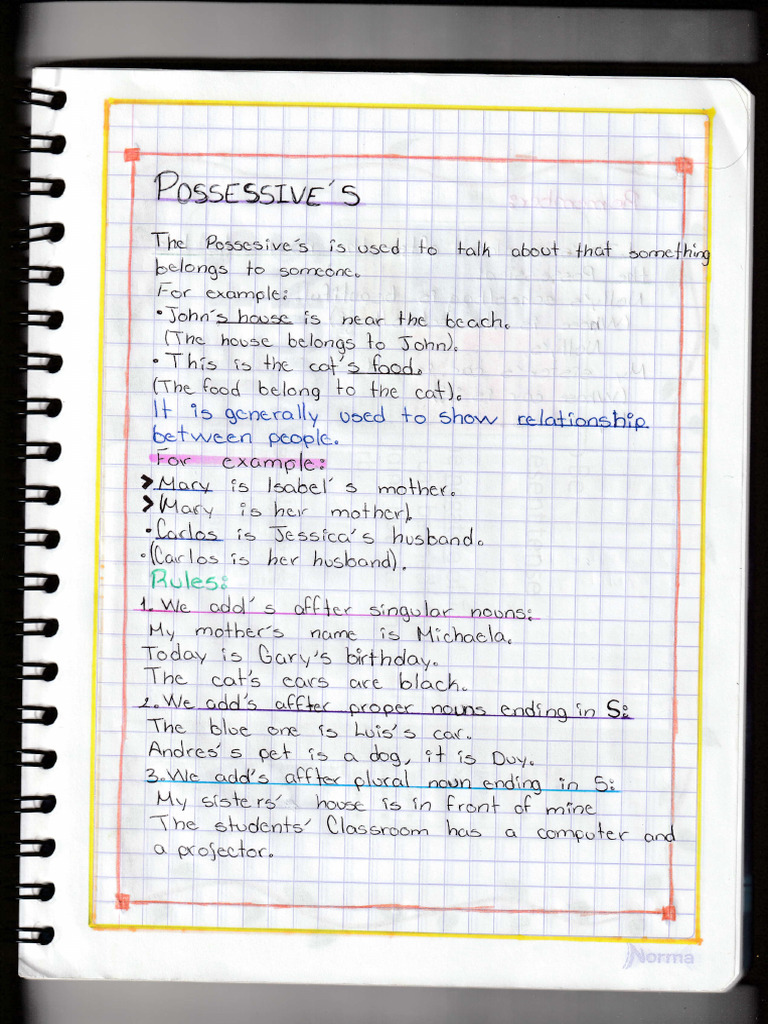 POSSESSIVE'S
The Possesive's is used to talk about that something
belongs to someone.
For example:
• John's house is near the beach.
(The house belongs to John).
• This is the cat's food.
(The food belong to the cat).
It is generally used to show relationship
between people.
For example:
> Mary is Isabel's mother.
> (Mary is her mother).
• Carlos is Jessica's husband.
• (Carlos is her husband).
Rules:
1. We add's affter singular nouns:
My mother's name is Michaela.
Today is Gary's birthday.
The cat's ears are black.
2. We add's affter proper nouns ending in S:
The blue one is Luis's car.
Andres's pet is a dog, it is Duy.
3. We add's affter plural noun ending in S:
My sisters' house is in front of mine
The students' Classroom has a computer and
a projector.
Norma